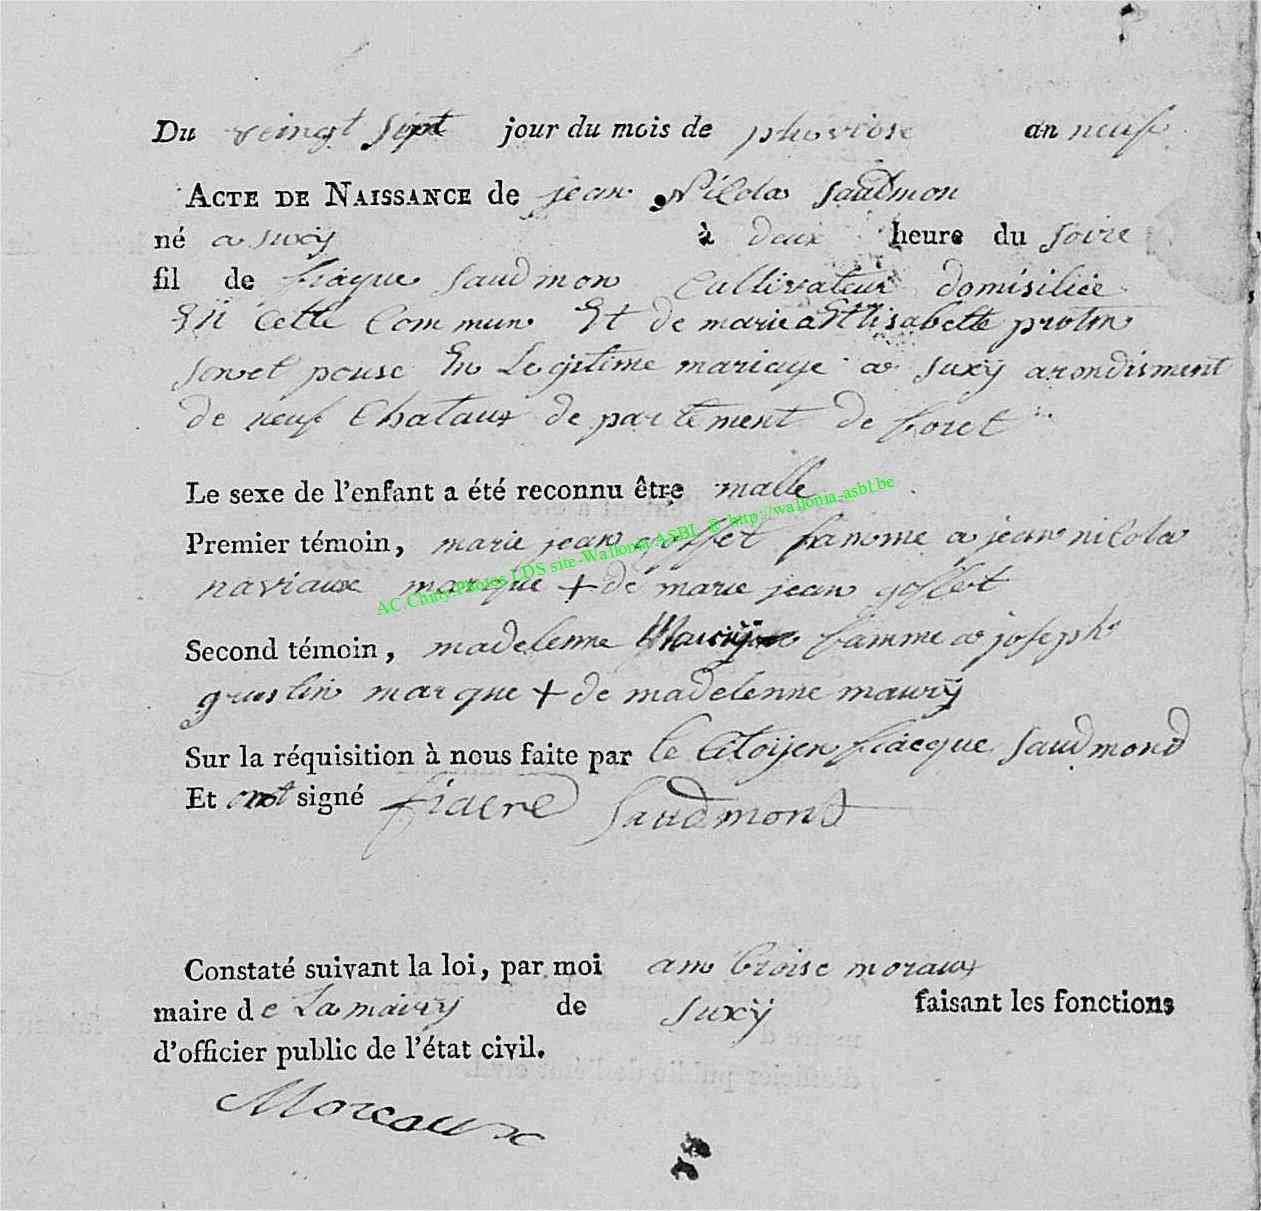 Du veingt sept jour du mois de pluviose an neuf
ACTE DE NAISSANCE de jean Nicola saudmon
né a suxÿ à deux heure du soire
fil de fiaque saudmon Cultivateur domisiliée
En Cette Commun Et de marie Elisabette protin
son et pouse En Legitime mariage a suxÿ arondisment
de neuf Chataux de partement de foret
Le sexe de l'enfant a été reconnu être malle
Premier témoin, marie jean goffet famme a jean nicola
naviaux marque + de marie jean goffet
AC.Chiny-Photos LDS site-Wallonia ASBL @ http://wallonia-asbl.be
Second témoin, madelenne Maurÿ famme a joseph
gruslin marque + de madelenne maurÿ
Sur la réquisition à nous faite par le Citoÿen fiacque saudmond
Et ont signé fiacre saudmont
Constaté suivant la loi, par moi am broise moraux
maire de La mairÿ de suxÿ faisant les fonctions
d'officier public de l'état civil.
Moreaux